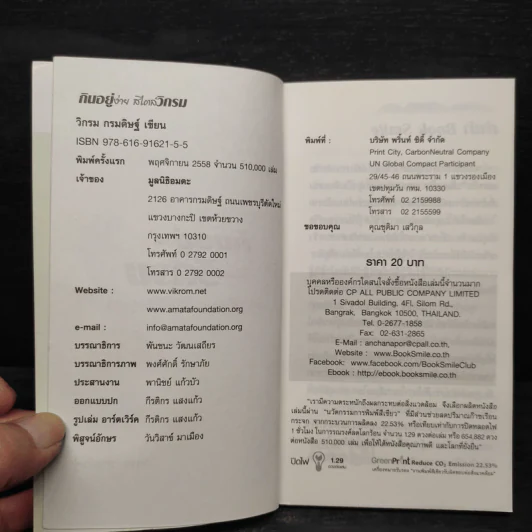 กินอยู่ง่าย สไตล์วิกรม
วิกรม กรมดิษฐ์ เขียน
ISBN 978-616-91621-5-5
พิมพ์ครั้งแรก พฤศจิกายน 2558 จำนวน 510,000 เล่ม
เจ้าของ มูลนิธิอมตะ
2126 อาคารกรมดิษฐ์ ถนนเพชรบุรีตัดใหม่
แขวงบางกะปิ เขตห้วยขวาง
กรุงเทพฯ 10310
โทรศัพท์ 0 2792 0001
โทรสาร 0 2792 0002
Website : www.vikrom.net
www.amatafoundation.org
e-mail : info@amatafoundation.org
บรรณาธิการ พันชนะ วัฒนเสถียร
บรรณาธิการภาพ พงศ์ศักดิ์ รักษาภัย
ประสานงาน พานิชย์ แก้วบัว
ออกแบบปก กีรติกร แสงแก้ว
รูปเล่ม อาร์ตเวิร์ค กีรติกร แสงแก้ว
พิสูจน์อักษร วันวิสาข์ มาเมือง
พิมพ์ที่ : บริษัท พริ้นท์ ซิตี้ จำกัด
Print City, CarbonNeutral Company
UN Global Compact Participant
29/45-46 ถนนพระราม 1 แขวงรองเมือง
เขตปทุมวัน กทม. 10330
โทรศัพท์ 02 2159988
โทรสาร 02 2155599
ขอขอบคุณ คุณชุติมา เสวิกุล
ราคา 20 บาท
บุคคลหรือองค์กรใดสนใจสั่งซื้อหนังสือเล่มนี้จำนวนมาก
โปรดติดต่อ CP ALL PUBLIC COMPANY LIMITED
1 Sivadol Building, 4Fl, Silom Rd.,
Bangrak, Bangkok 10500, THAILAND.
Tel. 0-2677-1858
Fax. 02-631-2865
E-Mail : anchanapor@cpall.co.th,
Website : www.BookSmile.co.th
Facebook: www.facebook.com/BookSmileClub
Ebook : http://ebook.booksmile.co.th
"เรามีความตระหนักถึงผลกระทบต่อสิ่งแวดล้อม จึงเลือกผลิตหนังสือ
เล่มนี้ผ่าน "นวัตกรรมการพิมพ์สีเขียว" ที่มีส่วนช่วยลดปริมาณก๊าซเรือน
กระจก จากกระบวนการผลิตลง 22.53% หรือเทียบเท่ากับการปิดหลอดไฟ
1 ชั่วโมง ในการรณรงค์ลดโลกร้อน จำนวน 1.29 ดวงต่อเล่ม หรือ 654,882 ดวง
ต่อหนังสือ 510,000 เล่ม เพื่อให้ได้หนังสือคุณภาพดี และโลกที่ยั่งยืน"
ปิดไฟ 1.29
GreenPrint Reduce CO₂ Emission 22.53%